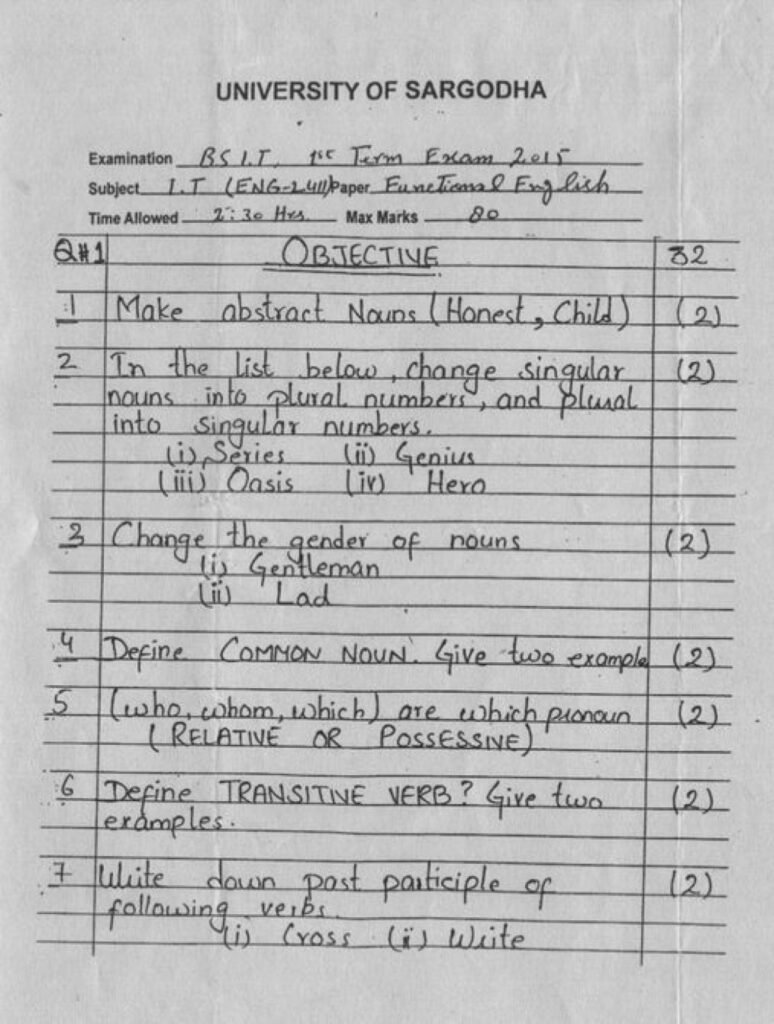 UNIVERSITY OF SARGODHA
Examination BS I.T. 1st Term Exam 2015
Subject I.T (ENG-2411) Paper Functional English
Time Allowed 2:30 Hrs. Max Marks 80
Q#1 OBJECTIVE 32
1 Make abstract Nouns (Honest, Child) (2)
2 In the list below, change singular (2)
nouns into plural numbers, and plural
into singular numbers.
(i) Series (ii) Genius
(iii) Oasis (iv) Hero
3 Change the gender of nouns (2)
(i) Gentleman
(ii) Lad
4 Define COMMON NOUN. Give two example (2)
5 (who, whom, which) are which pronoun (2)
(RELATIVE OR POSSESSIVE)
6 Define TRANSITIVE VERB? Give two (2)
examples.
7 Write down past participle of (2)
following verbs.
(i) Cross (ii) Write